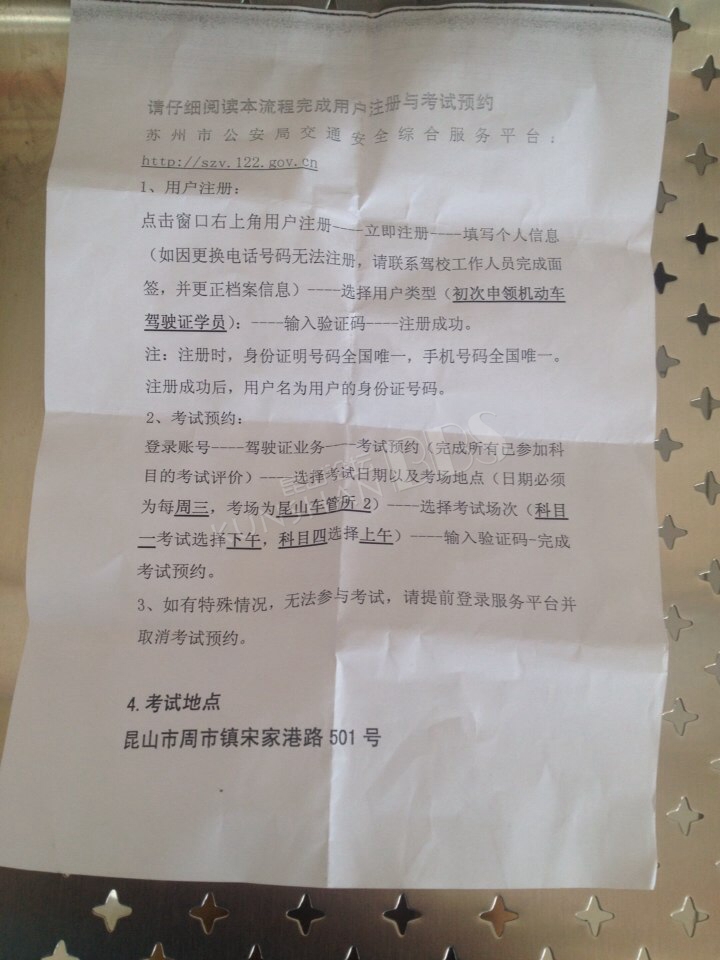 请仔细阅读本流程完成用户注册与考试预约
苏州市公安局交通安全综合服务平台:
http://szv.122.gov.cn
1、用户注册:
点击窗口右上角用户注册----立即注册----填写个人信息
（如因更换电话号码无法注册，请联系驾校工作人员完成面
签，并更正档案信息）----选择用户类型（初次申领机动车
驾驶证学员）：----输入验证码----注册成功。
注：注册时，身份证明号码全国唯一，手机号码全国唯一。
注册成功后，用户名为用户的身份证号码。
2、考试预约:
登录账号----驾驶证业务----考试预约（完成所有已参加科
目的考试评价）----选择考试日期以及考场地点（日期必须
为每周三，考场为昆山车管所 2）----选择考试场次（科目
一考试选择下午，科目四选择上午）----输入验证码-完成
考试预约。
3、如有特殊情况，无法参与考试，请提前登录服务平台并
取消考试预约。
4.考试地点
昆山市周市镇宋家港路 501 号